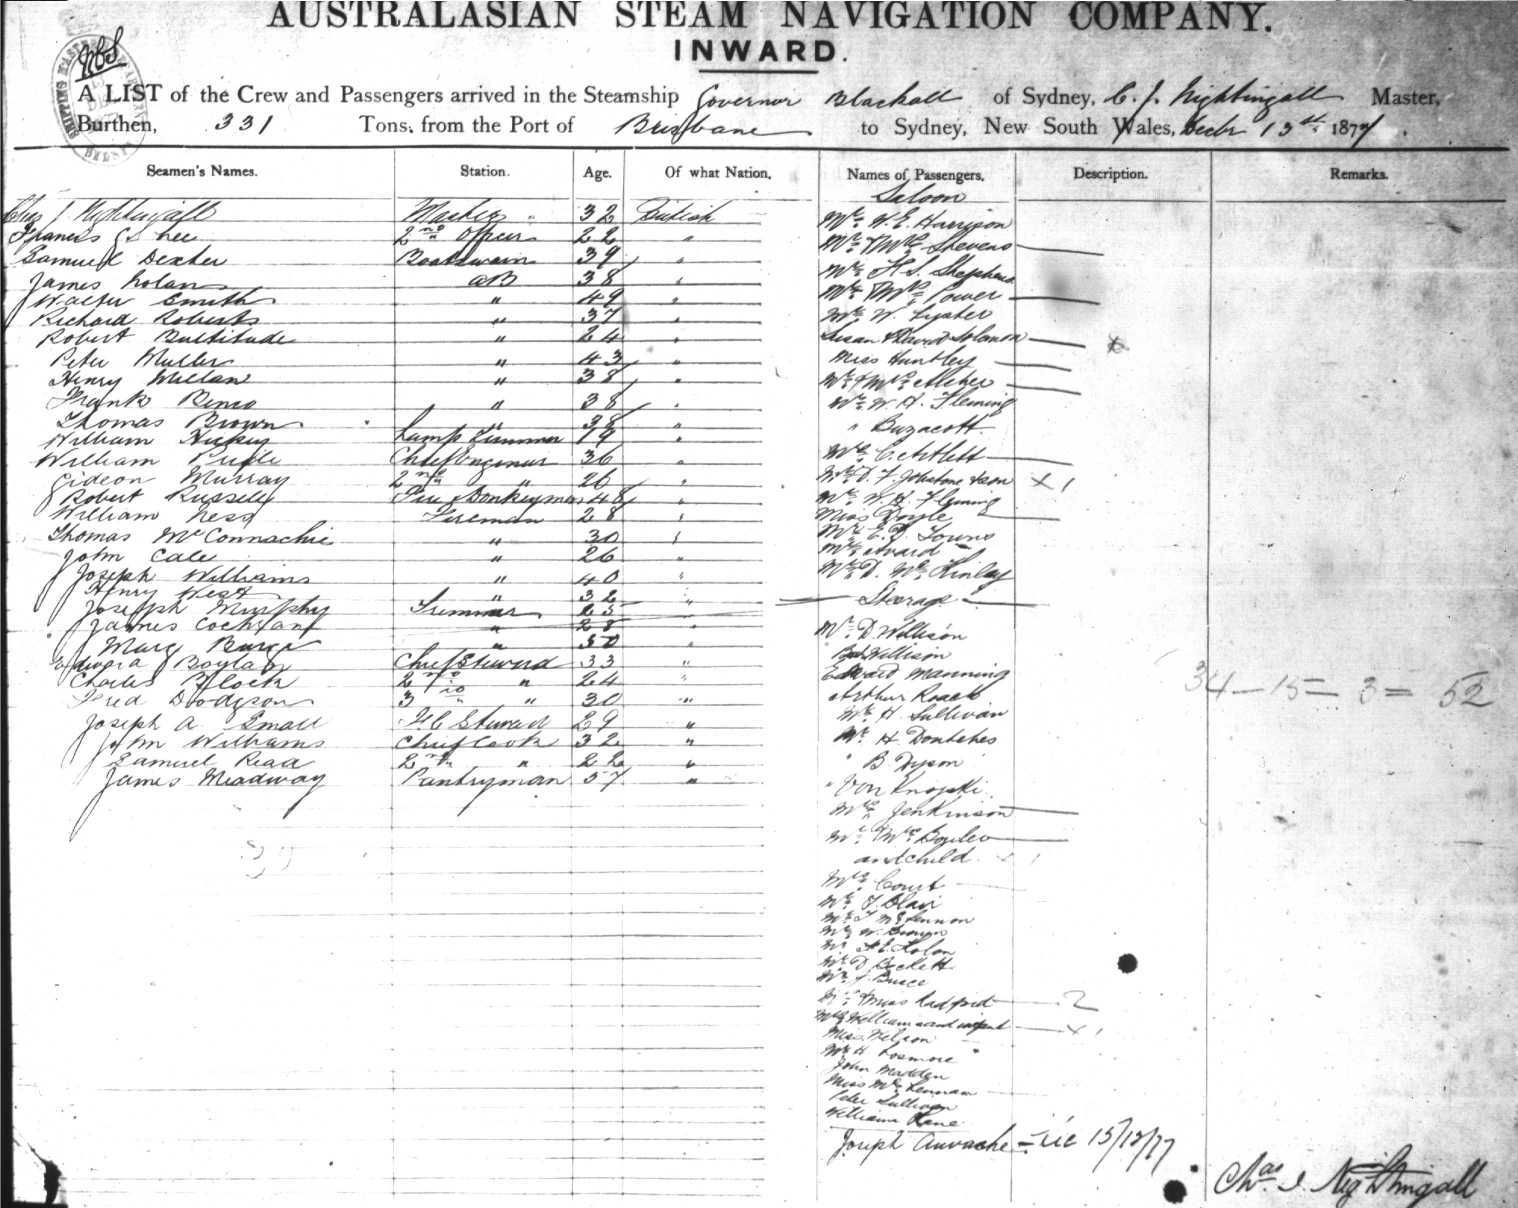 AUSTRALASIAN STEAM NAVIGATION COMPANY.
INWARD.
A LIST of the Crew and Passengers arrived in the Steamship Governor Blackall of Sydney, C. J. Nightingall Master,
Burthen, 331 Tons, from the Port of Brisbane to Sydney, New South Wales, Decbr 13th 1877.
Seamen's Names. Station. Age. Of what Nation.
Chas J Nightingall Master 32 British
Francis J S Lee 2nd Officer 22 "
Samuel Dexter Boatswain 39 "
James Nolan AB 38 "
Walter Smith " 49 "
Richard Roberts " 37 "
Robert Bultitude " 24 "
Peter Muller " 43 "
Henry Millan " 38 "
Frank " 38 "
Thomas Brown " 38 "
William Hickey Lamp Trimmer 19 "
William Chief Engineer 36 "
Gideon Murray 2nd " 26 "
Robert Russell Donkeyman 48 "
William Ness Fireman 28 "
Thomas McConnachie " 30 "
John Cale " 26 "
Joseph Williams " 40 "
Henry West " 32 "
Joseph Murphy Trimmer 25 "
James Cochran " 28 "
" 50 "
Edward Boylan Chief Steward 33 "
Charles Block 2nd " 24 "
Fred Dodgson 3rd " 30 "
Joseph A Small F.C Steward 29 "
John Williams Chief Cook 32 "
Samuel Read 2nd " 22 "
James Meadway Pantryman 57 "
Names of Passengers. Description. Remarks.
Saloon
Mr. W. E. Harrison
Mr & Mrs Stevens
Mr H. S. Shepherd
Mr & Mrs Power
Mr W. Lyster
Susan & David Solomon
Miss Huntley
Mr & Mrs Archer
Mr W. H. Fleming
" Buzacott
Mrs C. Artlett
Mr D. F. Johnstone & son x 1
Mr W. H. Fleming
Miss Doyle
Mr E. D. Towns
Mrs Avard
Mr D. McKinley
Steerage
Mr. D. Willison
Willison
Edward Manning
Arthur Roach
Mr H. Sullivan
34 - 15 = 3 = 52
Mr H
" B Dyson
" Von
Mrs Jenkinson
Mr & Mrs
and child x 1
Mrs Court
Mr T. Blair
Mr T McLennon
Mr W. Brown
Mr
Mr D Beckett
Mr J Bruce
Mrs & Miss Radford 2
Mrs Williams and infant x 1
Miss Nelson
Mr H
John Madden
Miss McLennan
Peter Sullivan
William Kane
Joseph 15/12/77
Chas J. Nightingall